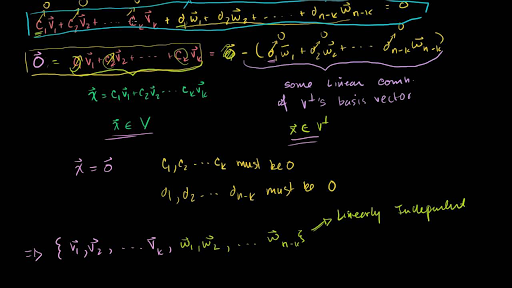 0 0 0 0 0 0
c₁v⃗₁ + c₂v⃗₂ + ··· c_k v⃗_k + d₁w⃗₁ + d₂w⃗₂ + ······ + d_{n-k}w⃗_{n-k} = 0
0⃗ = c₁v⃗₁ + c₂v⃗₂ + ··· + c_k v⃗_k = 0⃗ - (d₁w⃗₁ + d₂w⃗₂ + ··· d_{n-k}w⃗_{n-k})
x⃗ = c₁v⃗₁ + c₂v⃗₂ ··· c_k v⃗_k
some linear comb.
of V⊥'s basis vector
x⃗ ∈ V
x⃗ ∈ V⊥
x⃗ = 0⃗ c₁, c₂ ··· c_k must be 0
d₁, d₂ ··· d_{n-k} must be 0
Linearly Independent
⇒ { v⃗₁, v⃗₂, ··· v⃗_k, w⃗₁, w⃗₂, ··· w⃗_{n-k} }